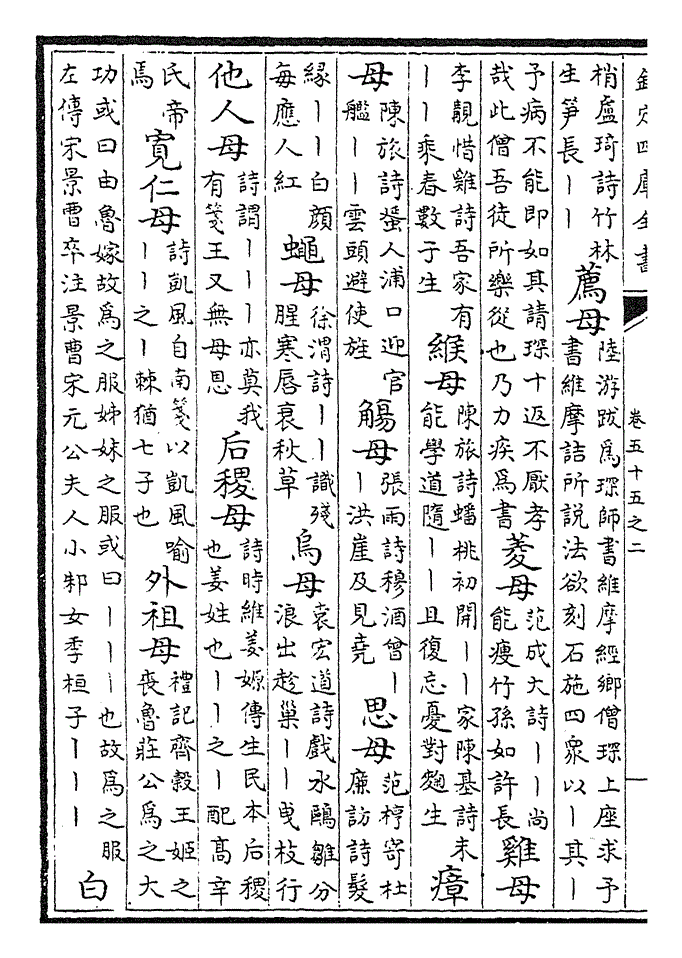 欽定四庫全書
卷五十五之二
梢盧琦詩竹林
生筍長丨丨
薦母
陸游跋爲琛師書維摩經鄉僧琛上座求予
書維摩詰所説法欲刻石施四衆以丨其丨
予病不能即如其請琛十返不厭孝
哉此僧吾徒所樂從也乃力疾爲書
菱母
范成大詩丨丨尚
能瘦竹孫如許長
雞母
李覯惜雞詩吾家有
丨丨乘春數子生
緱母
陳旅詩蟠桃初開丨丨家陳基詩未
能學道隨丨丨且復忘憂對麴生
瘴
母
陳旅詩蜑人浦口迎官
艦丨丨雲頭避使旌
觴母
張雨詩穆酒曾丨
丨洪崖及見堯
思母
范梈寄杜
廉訪詩髮
緣丨丨白顔
每應人紅
蠅母
徐渭詩丨丨識殘
腥寒唇哀秋草
烏母
袁宏道詩戲水鷗雛分
浪出趁巢丨丨曳枝行
他人母
詩謂丨丨丨亦莫我
有箋王又無母恩
后稷母
詩時維姜嫄傳生民本后稷
也姜姓也丨丨之丨配高辛
氏帝
焉
寛仁母
詩凱風自南箋以凱風喻
丨丨之丨棘猶七子也
外祖母
禮記齊穀王姬之
喪魯莊公爲之大
功或曰由魯嫁故爲之服姊妹之服或曰丨丨丨也故爲之服
左傳宋景曹卒注景曹宋元公夫人小邾女季桓子丨丨丨
白